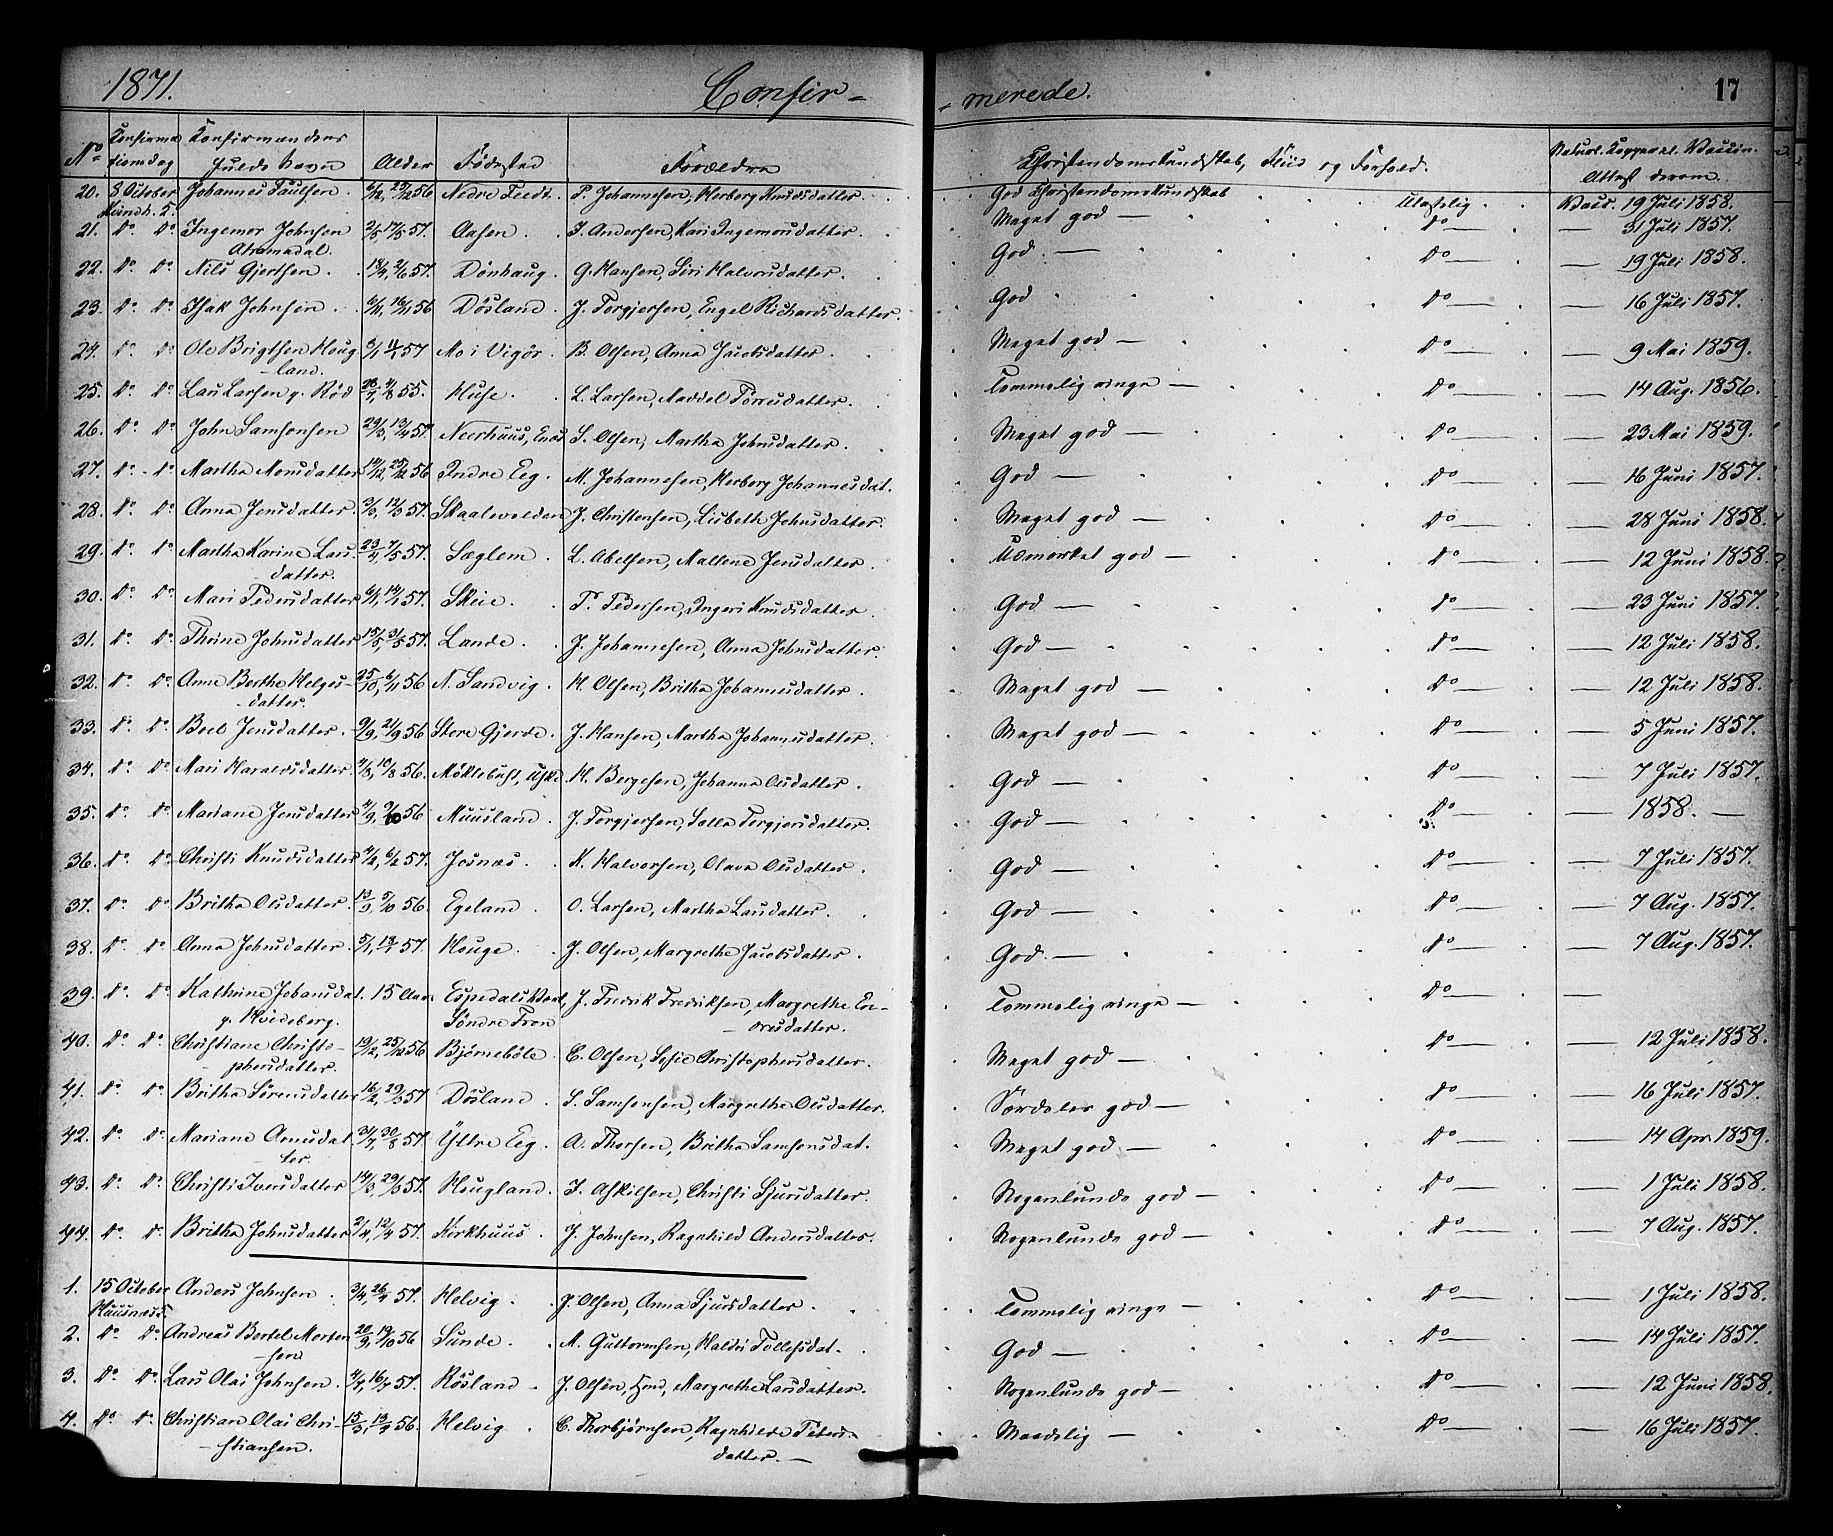 1871. Confir- -merede. 17
No Konfirma- tionsdag Konfirmandens fulde Navn Alder Födested Forældre Christendomskundskab, Fliis og Forhold. Naturl. Kopper el. Vaccin. Attest derom.
20. 8 October Johannes Paulsen 56 Nedre Teedt. P. Johannesen, Herborg Knudsdatter. God Christendomskundskab Ulastelig Vacc. 19 Juli 1858.
Kvindh. S.
21. do do Ingemor Johnsen 2/5, 17/5 57. Aasen. J. Andersen, Kari Ingemorsdatter. Meget god — do — 31 Juli 1857.
Utramadal.
22. do do Nils Gjertsen. 57. Dönhaug. G. Hansen, Siri Halvorsdatter. God. — do — 19 Juli 1858.
23. do do Isak Johnsen. 6/11, 16/11 56 Dösland. J. Torgjersen, Engel Richardsdatter. God do — 16 Juli 1857.
24. do do Ole Brigtsen Houg- 57 Mo i Vigör. B. Olsen, Anna Jacobsdatter. Meget god — do — 9 Mai 1859.
land.
25. do do Lars Larsen g. Röd 55. Huse. L. Larsen, Maddel Torrisdatter. Temmelig ringe — do — 14 Aug. 1856.
26. do do John Samsonsen 29/3, 13/4 57. Neerhuus, Enæs S. Olsen, Martha Johnsdatter. Meget god — do — 23 Mai 1859.
27. do do Martha Monsdatter 56 Indre Eeg. M. Johannesen, Herborg Johannesdat. God — do — 16 Juni 1857.
28. do do Anna Jensdatter. 3/3, 12/3 57. Skaalevolden J. Christensen, Lisbeth Johnsdatter. Meget god — do — 28 Juni 1858.
29. do do Martha Karine Lars- 23/4, 7/5 57. Sæglem. L. Abelsen, Maltene Jensdatter. Udmærket god — do — 12 Juni 1858.
datter.
30. do do Mari Pedersdatter 6/1, 14/1 57. Skeie. P. Pedersen, Ingeri Knudsdatter. God — do — 23 Juni 1857.
31. do do Thrine Johnsdatter 15/5, 31/5 57. Lande. J. Johannesen, Anna Johnsdatter. God — do — 12 Juli 1858.
32. do do Anna Berthe Helges- 25/10, 6/11 56 N. Sandvig. H. Olsen, Britha Johannesdatter. Meget god — do — 12 Juli 1858.
datter.
33. do do Boel Jensdatter. 9/9, 21/9 56 Store Gjerde. J. Hansen, Martha Johannesdatter. Meget god — do — 5 Juni 1857.
34. do do Mari Haraldsdatter. 4/8, 10/8 56. Möklebust, Uske. H. Bergesen, Johanna Olsdatter. God — do — 7 Juli 1857.
35. do do Mariane Jensdatter 4/9, 9/10 56 Muusland. J. Torgjersen, Salla Torgjersdatter. God — do — 1858. —
36. do do Christi Knudsdatter 4/2, 6/2 57. Josnæs. K. Halvorsen, Olava Olsdatter. God — do — 7 Juli 1857.
37. do do Britha Olsdatter. 13/9, 5/10 56. Egeland. O. Larsen, Martha Larsdatter. God — do — 7 Aug. 1857.
38. do do Anna Johnsdatter. 57. Houge. J. Olsen, Margrethe Jacobsdatter. God — do — 7 Aug. 1857.
39. do do Kathrine Johansdat. 15 Aar. Espedalsværk, J. Fredrik Fredriksen, Margrethe Ev- Temmelig ringe — do —
g. Hvideberg. Söndre Fron -ersdatter.
40. do do Christiane Christo- 19/12, 25/12 56 Björneböle. C. Olsen, Sofie Christophersdatter. Meget god — do — 12 Juli 1858.
-phersdatter.
41. do do Britha Sörensdatter 16/2, 29/3 57 Dösland. S. Samsonsen, Margretha Olsdatter. Særdeles god — do — 16 Juli 1857.
42. do do Mariane Arnesdat- 31/7, 30/8 57. Yttre Eeg. A. Thorsen, Britha Samsonsdat. Meget god — do — 14 Apr. 1859.
ter.
43. do do Christi Iversdatter 14/3, 29/3 57. Hougland. I. Askilsen, Christi Sjursdatter. Nogenlunde god — do — 1 Juli 1858.
44. do do Britha Johnsdatter 2/4, 12/4 57. Kirkhuus. J. Johnsen, Ragnhild Andersdatter. Nogenlunde god — do — 7 Aug. 1857.
1. 15 October Anders Johnsen. 3/4, 26/4 57. Helvig. J. Olsen, Anna Sjursdatter. Temmelig ringe — do — 1 Juli 1858.
Huusnæs S.
2. do do Andreas Bertel Morten- 20/9, 19/10 56 Sunde. M. Guttormsen, Haldri Tollefsdat. God — do — 14 Juli 1857.
-sen
3. do do Lars Olai Johnsen. 57. Rösland — J. Olsen, Hmd, Margrethe Larsdatter. Nogenlunde god — do — 12 Juni 1858.
4. do do Christian Olai Chri- 56. Helvig. C. Thorbjörnsen, Ragnhilde Peders- Maadelig — do — 16 Juli 1857.
-stiansen. datter. —